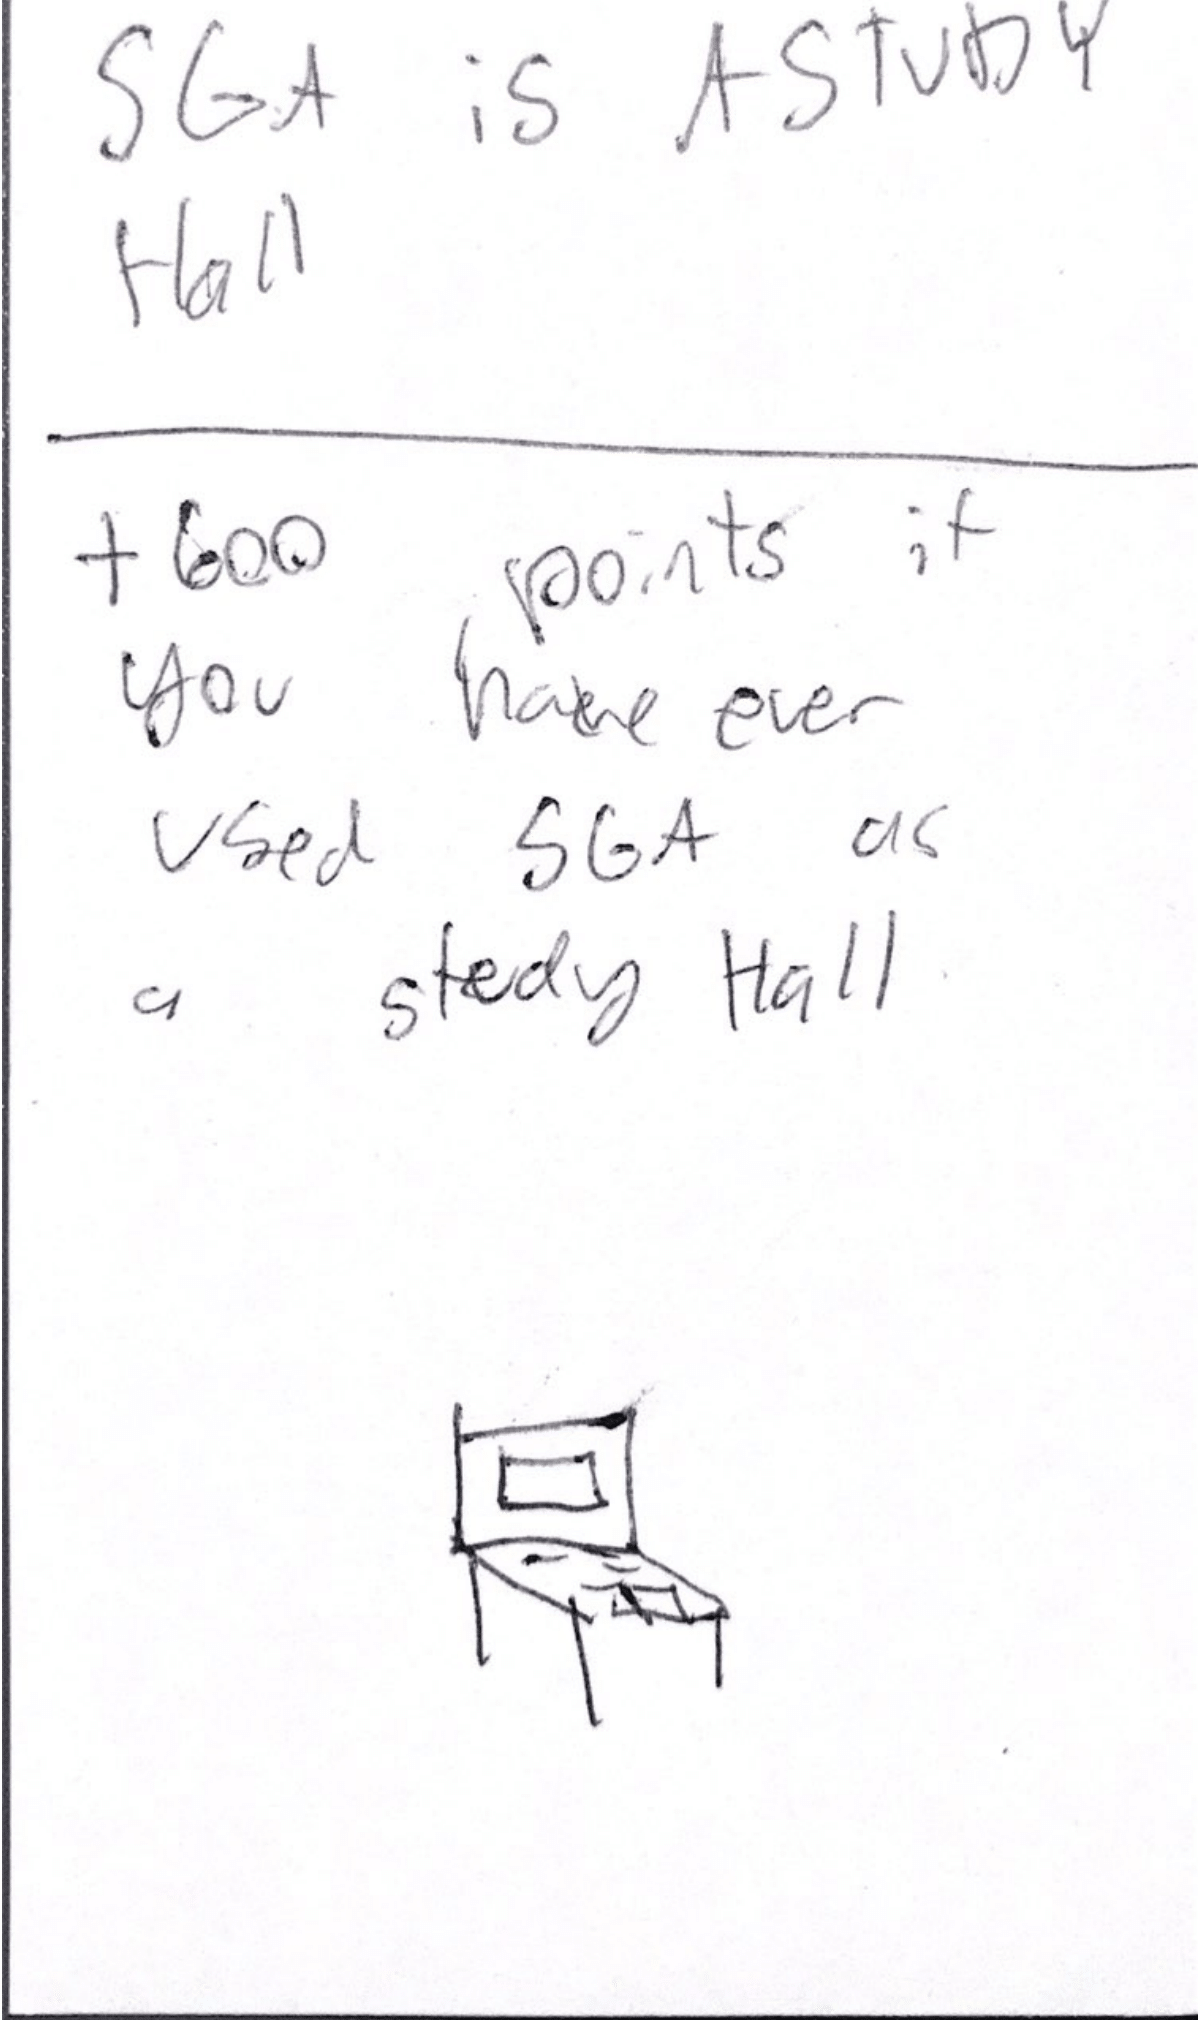 SGA is A STUDY
Hall
+600 points if
you have ever
used SGA as
a study Hall